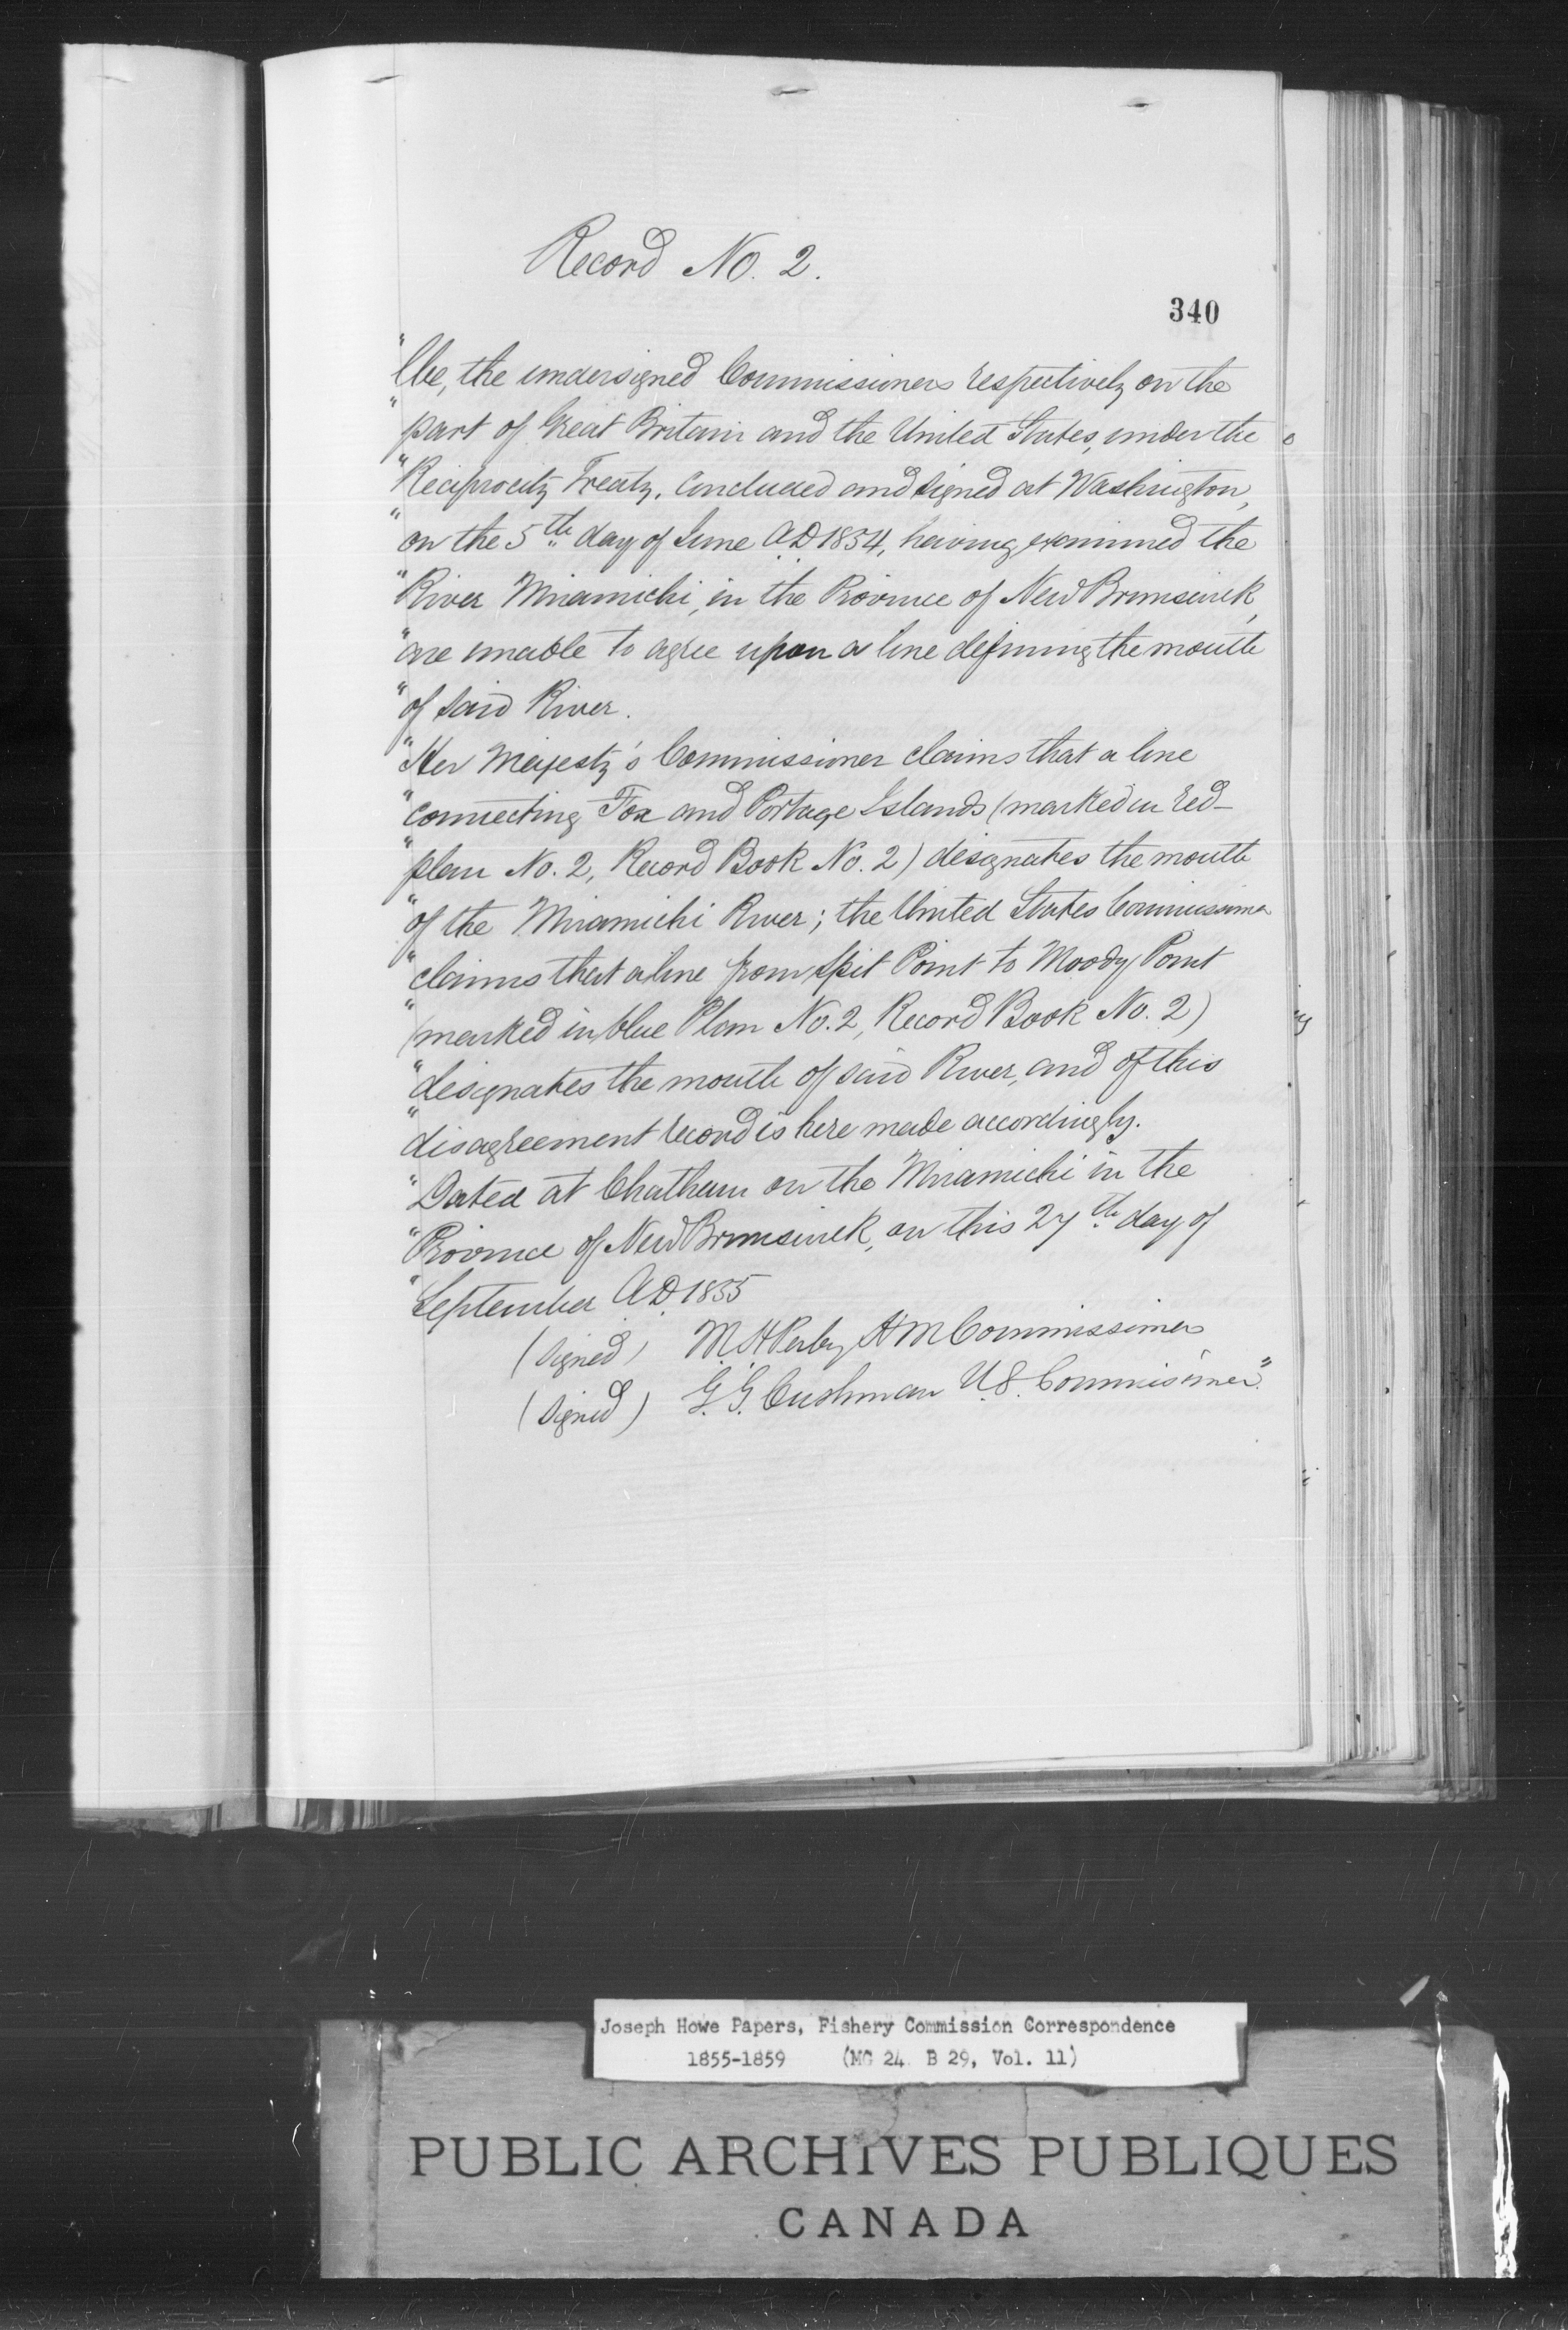 Record No. 2.
340
"We, the undersigned Commissioners respectively on the
"part of Great Britain and the United States, under the
"Reciprocity Treaty, Concluded and signed at Washington,
"on the 5th day of June A.D. 1854, having examined the
"River Miramichi, in the Province of New Brunswick,
"are unable to agree upon a line defining the mouth
"of said River.
"Her Majesty's Commissioner claims that a line
"connecting Fox and Portage Islands (marked in red-
"plan No. 2, Record Book No. 2) designates the mouth
"of the Miramichi River; the United States Commissioner
"claims that a line from Spit Point to Moody Point
"(marked in blue Plan No. 2, Record Book No. 2)
"designates the mouth of said River, and of this
"disagreement record is here made accordingly.
"Dated at Chatham on the Miramichi in the
"Province of New Brunswick, on this 27th day of
"September A.D. 1855
(Signed) M. H. Perley H M Commissioner
(Signed) G. G. Cushman U.S. Commissioner."
Joseph Howe Papers, Fishery Commission Correspondence
1855-1859 (MG 24 B 29, Vol. 11)
PUBLIC ARCHIVES PUBLIQUES
CANADA